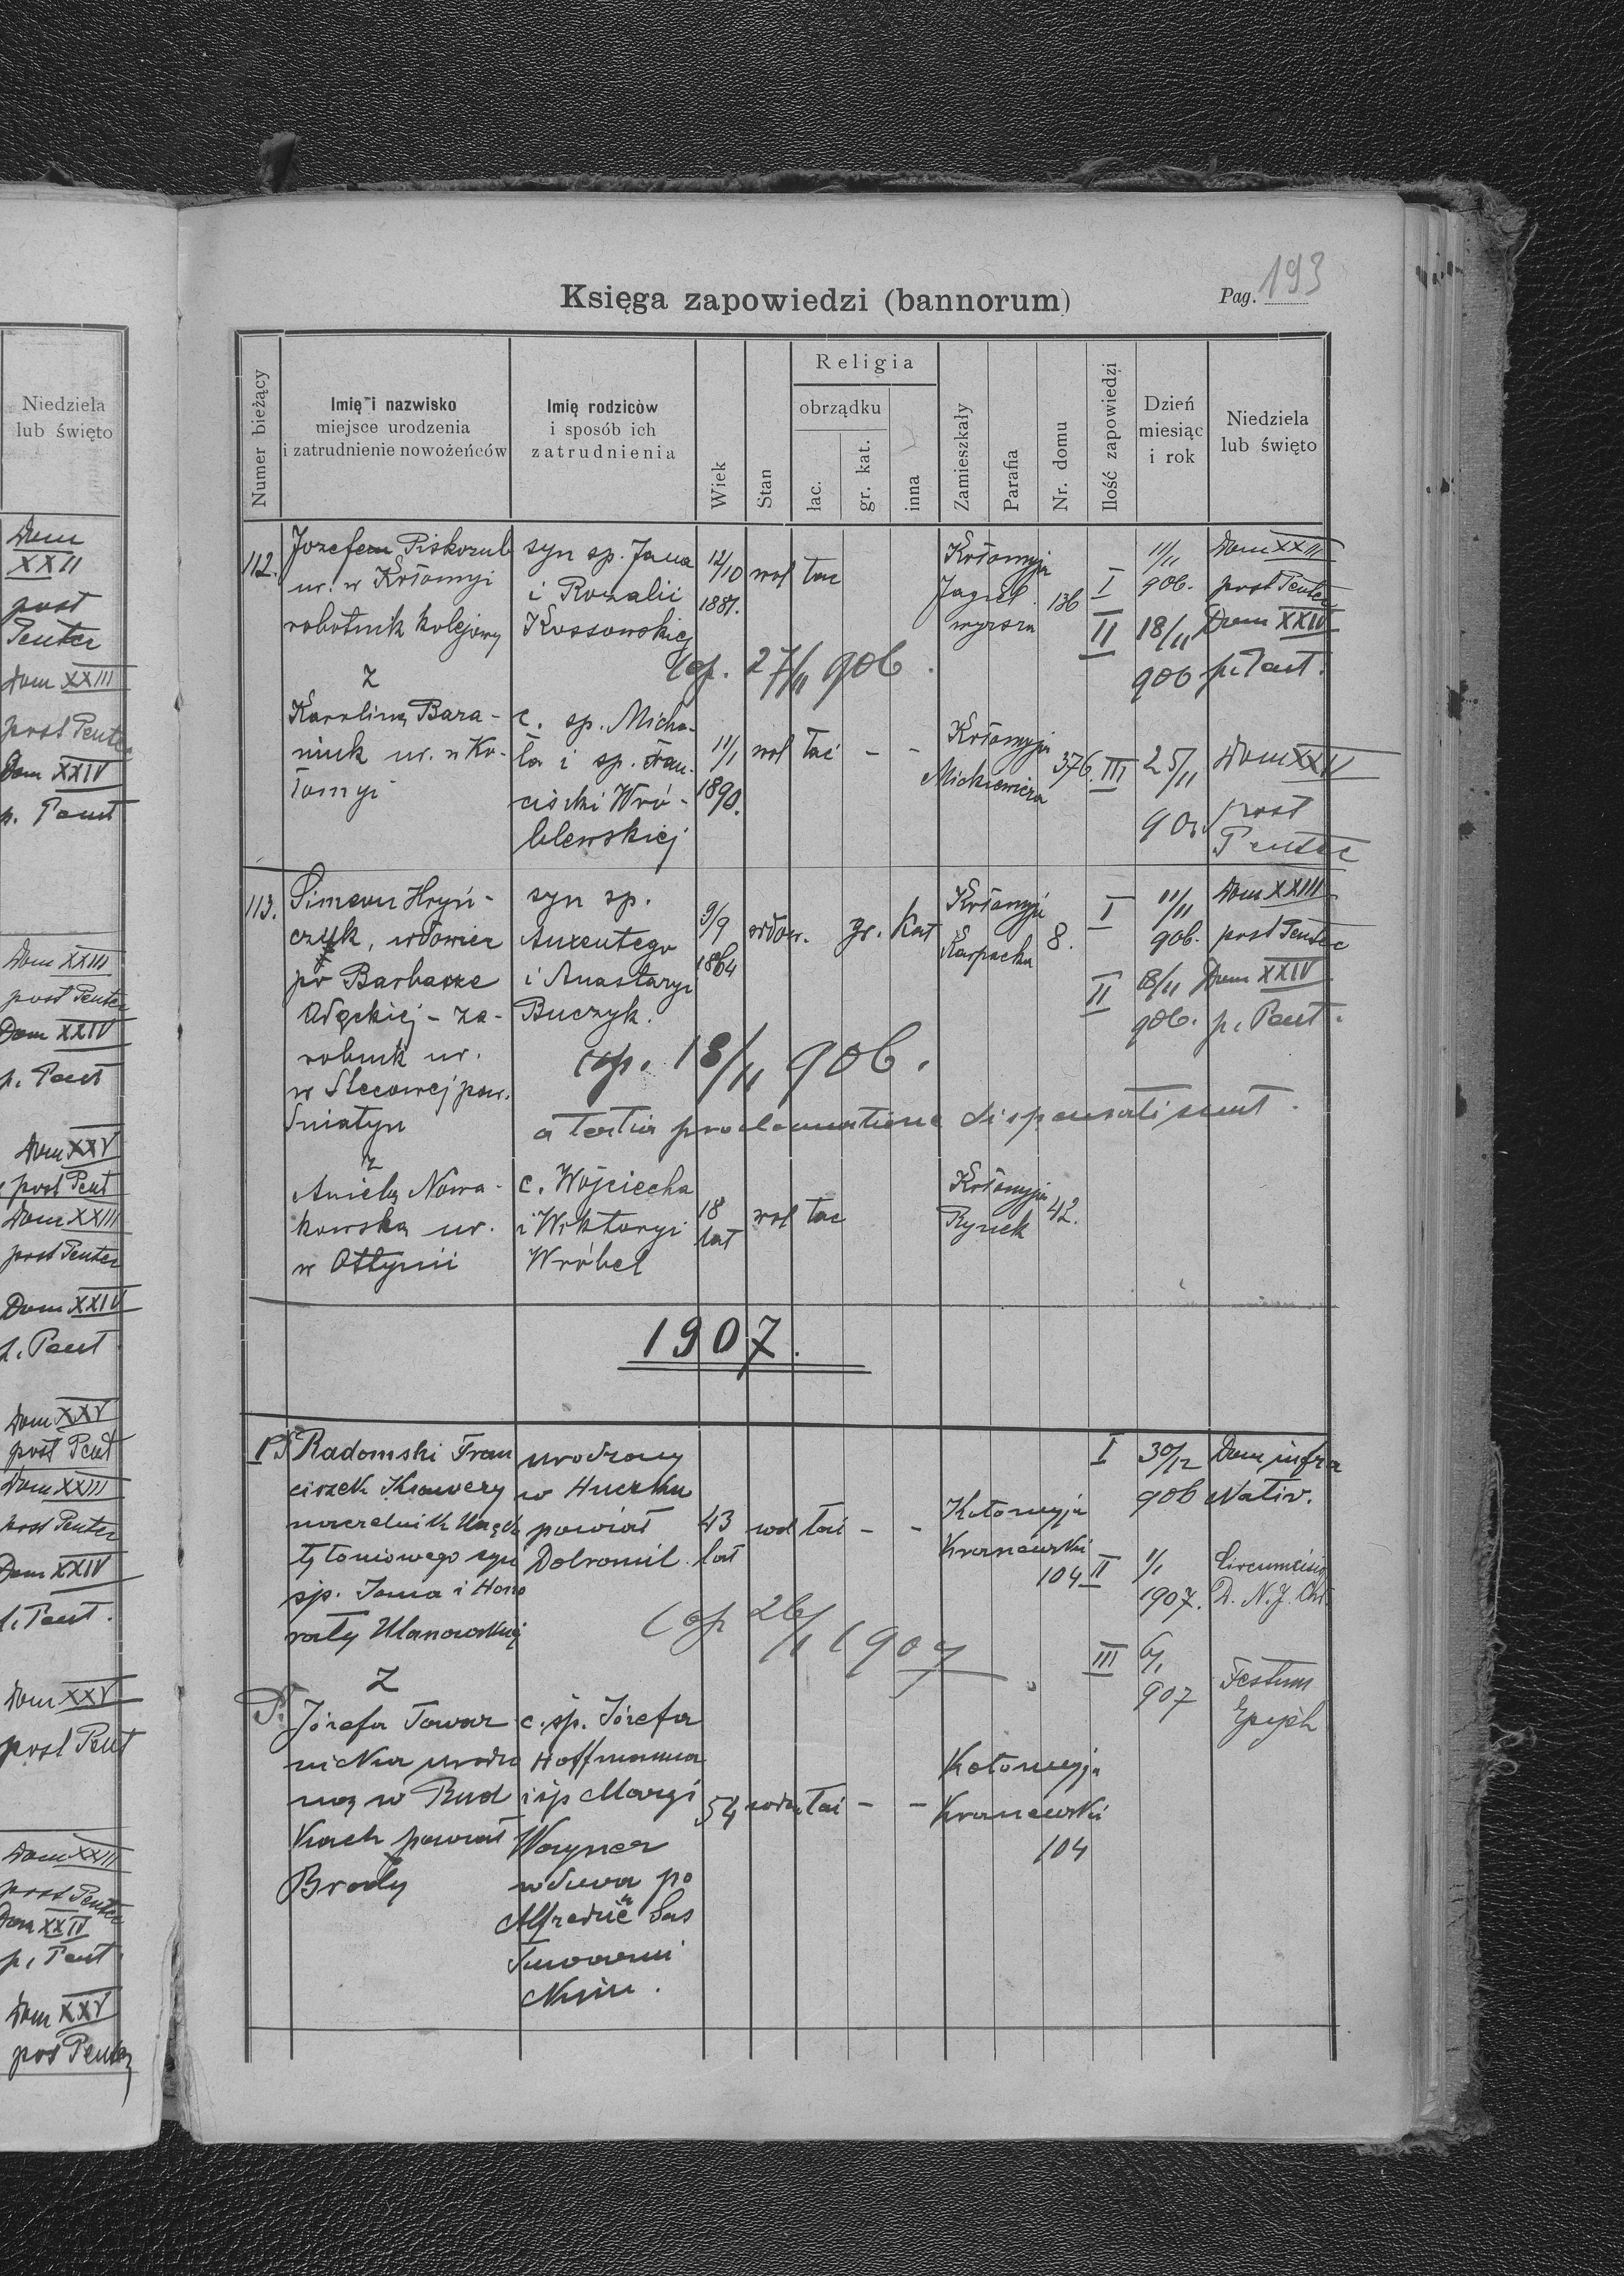 Niedziela
lub święto
Dom
XXII
post
Pentec
Dom XXIII
post Pentec
Dom XXIV
p. Pent
Dom XXIII
post Pentec
Dom XXIV
p. Pent
Dom XXV
post Pent
Dom XXIII
post Pentec
Dom XXIV
p. Pent
Dom XXV
post Pent
Dom XXIII
post Pentec
Dom XXIV
p. Pent.
Dom XXV
post Pent
Dom XXIII
post Pentec
Dom XXIV
p. Pent
Dom XXV
post Pentec
Księga zapowiedzi (bannorum)
Pag. 193
Numer bieżący
Imię i nazwisko
miejsce urodzenia
i zatrudnienie nowożeńców
Imię rodziców
i sposób ich
zatrudnienia
Wiek
Stan
Religia
obrządku
łac.
gr. kat.
inna
Zamieszkały
Parafia
Nr. domu
Ilość zapowiedzi
Dzień
miesiąc
i rok
Niedziela
lub święto
112.
Jozefem Piskozub
ur. w Kołomyi
robotnik kolejowy
syn sp. Jana
i Rozalii
Kossowskiej
12/10
1881.
wol łac
Kołomyja
Jagiel.
wyższa
136
I
11/11
906.
Dom XXIII
post Pentec
II
18/11
906
Dom XXIV
p. Pent.
Cop. 27/11 906.
z
Karoliną Bara-
niuk ur. w Ko-
łomyi
c. sp. Micha-
ła i sp. Fran-
ciszki Wró-
blewskiej
11/1
1890.
wol łać - -
Kołomyja
Mickiewicza
376.
III
25/11
Dom XXV
post
Pentec
113.
Simeon Hryń-
czyk, wdowiec
po Barbarze
zarobnik ur.
w Stecowej pow.
Śniatyn
syn sp.
Auxentego
i Anastazyi
Buczyk.
9/9
1864
wdow. gr. Kat
Kołomyja
Karpacka
8.
I
11/11
906.
Dom XXIII
post Pentec
II
18/11
906.
Dom XXIV
p. Pent.
cop. 18/11 906.
a tertia proclamatione dispensati sunt.
z
Anielą Nowa-
kowską ur.
w Ottynii
c. Wojciecha
i Wiktoryi
Wróbel
18
lat
wol łac
Kołomyja
Rynek
42.
1907.
1
Radomski Fran
ciszek Ksawery
naczelnik Urzęd
tytoniowego syn
sp. Jana i Hono
raty Ulanowskiej
urodzony
w Huczku
powiat
Dobromil
43
lat
wol łać - -
Kołomyja
Kraszewski
104
I
30/12
906
Dom infra
Nativ.
II
1/1
1907.
Circumcisio
D. N. J. Chr.
III
6/1
907
Festum
Epiph
Cop 26/1 1907
Z
Józefa Towar
nicka urodzo
na w Rud
kach powiat
Brody
c. śp. Józefa
Hoffmanna
i śp Maryi
Wagner
wdowa po
Alfredzie Sas
Towarni
ckim.
54
wdow łać - -
Kołomyja
Kraszewski
104